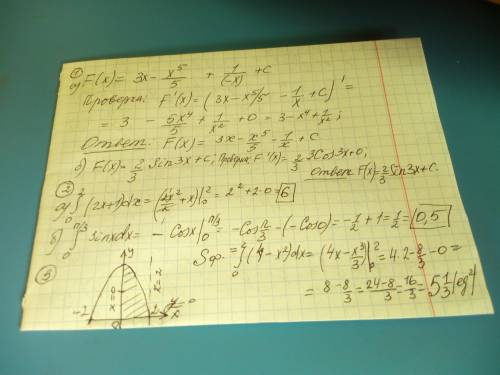 ①
а) F(x) = 3x - x⁵/5 + 1/(-x) + C
Проверка: F'(x) = (3x - x⁵/5 - 1/x + C)' =
= 3 - 5x⁴/5 + 1/x² + 0 = 3 - x⁴ + 1/x²;
Ответ: F(x) = 3x - x⁵/5 - 1/x + C
б) F(x) = 2/3 Sin3x + C; Проверка: F'(x) = 2/3 · 3Cos3x + 0,
Ответ F(x) = 2/3 Sin3x + C.
②
а) ∫₀² (2x+1)dx = (2x²/2 + x)|₀² = 2² + 2 - 0 = 6
б) ∫₀^(π/3) sinxdx = - Cosx|₀^(π/3) = - Cos π/3 - (-Cos0) = -1/2 + 1 = 1/2 = 0,5
③
Sф. = ∫₀² (4 - x²)dx = (4x - x³/3)|₀² = 4·2 - 8/3 - 0 =
= 8 - 8/3 = (24-8)/3 = 16/3 = 5 1/3 (ед²)
4
x=0
x=2
-2
2
x